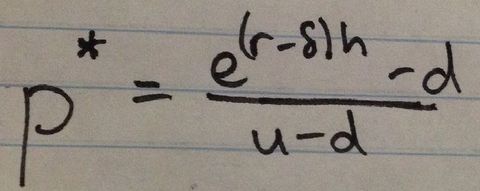 p* = (e^{(r-δ)h} - d)/(u-d)